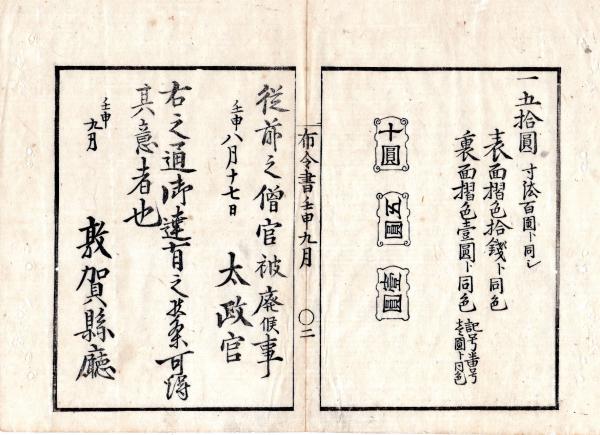 一五拾圓 寸法百圓ト同シ
表面摺色拾錢ト同色
裏面摺色壹圓ト同色 記号番号壱圓ト同色
十圓
五圓
壹圓
布令書壬申九月 〇二
従前之僧官被廃候事
壬申八月十七日 太政官
右之通御達有之候条可得
其意者也
壬申九月 敦賀縣廳